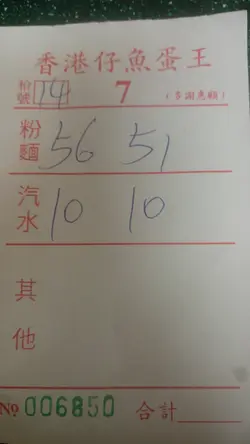 香港仔魚蛋王
枱號 14 7 (多謝惠顧)
粉麵 56 51
汽水 10 10
其他
No 006850 合計